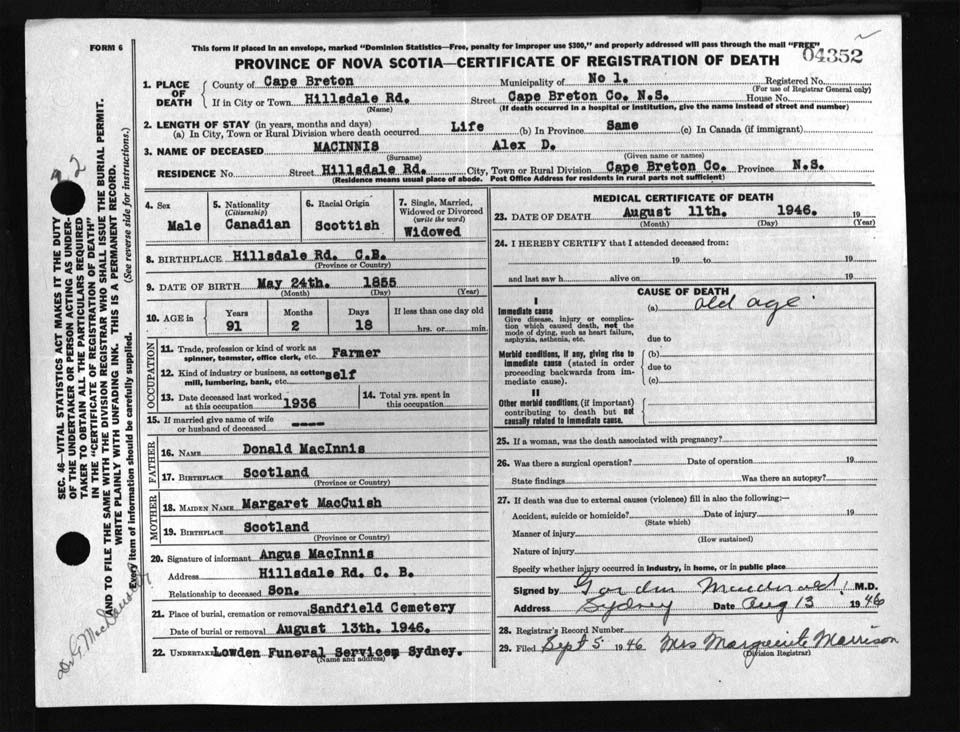 FORM 6
This form if placed in an envelope, marked "Dominion Statistics—Free, penalty for improper use $300," and properly addressed will pass through the mail "FREE"
04352
PROVINCE OF NOVA SCOTIA—CERTIFICATE OF REGISTRATION OF DEATH
1. PLACE OF DEATH
County of Cape Breton Municipality of No 1. Registered No.
(For use of Registrar General only)
If in City or Town Hillsdale Rd. Street Cape Breton Co. N.S. House No.
(Name) (If death occurred in a hospital or institution, give the name instead of street and number)
2. LENGTH OF STAY (in years, months and days)
(a) In City, Town or Rural Division where death occurred Life (b) In Province Same (c) In Canada (if immigrant)
3. NAME OF DECEASED MACINNIS Alex D.
(Surname) (Given name or names)
RESIDENCE No. Street Hillsdale Rd. City, Town or Rural Division Cape Breton Co. Province N.S.
(Residence means usual place of abode. Post Office Address for residents in rural parts not sufficient)
4. Sex
Male
5. Nationality
(Citizenship)
Canadian
6. Racial Origin
Scottish
7. Single, Married,
Widowed or Divorced
(write the word)
Widowed
8. BIRTHPLACE Hillsdale Rd. C.B.
(Province or Country)
9. DATE OF BIRTH May 24th. 1855
(Month) (Day) (Year)
10. AGE in
Years
91
Months
2
Days
18
If less than one day old
hrs. or min.
OCCUPATION
11. Trade, profession or kind of work as
spinner, teamster, office clerk, etc. Farmer
12. Kind of industry or business, as cotton
mill, lumbering, bank, etc. self
13. Date deceased last worked
at this occupation 1936
14. Total yrs. spent in
this occupation
15. If married give name of wife
or husband of deceased ----
FATHER
16. NAME Donald MacInnis
17. BIRTHPLACE Scotland
(Province or Country)
MOTHER
18. MAIDEN NAME Margaret MacCuish
19. BIRTHPLACE Scotland
(Province or Country)
20. Signature of informant Angus MacInnis
Address Hillsdale Rd. C. B.
Relationship to deceased Son.
21. Place of burial, cremation or removal Sandfield Cemetery
Date of burial or removal August 13th. 1946.
22. UNDERTAKER Lowden Funeral Service, Sydney.
(Name and address)
MEDICAL CERTIFICATE OF DEATH
23. DATE OF DEATH August 11th. 1946. 19
(Month) (Day) (Year)
24. I HEREBY CERTIFY that I attended deceased from:
19 to 19
and last saw h alive on 19
CAUSE OF DEATH
I
Immediate cause
Give disease, injury or complica-
tion which caused death, not the
mode of dying, such as heart failure,
asphyxia, asthenia, etc.
(a) old age
due to
Morbid conditions, if any, giving rise to
immediate cause (stated in order
proceeding backwards from im-
mediate cause).
(b)
due to
(c)
II
Other morbid conditions, (if important)
contributing to death but not
causally related to immediate cause.
25. If a woman, was the death associated with pregnancy?
26. Was there a surgical operation? Date of operation 19
State findings Was there an autopsy?
27. If death was due to external causes (violence) fill in also the following:—
Accident, suicide or homicide? Date of injury 19
(State which)
Manner of injury
(How sustained)
Nature of injury
Specify whether injury occurred in industry, in home, or in public place
Signed by Gordon Macdonald M.D.
Address Sydney Date Aug 13 1946
28. Registrar's Record Number
29. Filed Sept 5 1946 Mrs Marguerite Morrison
(Division Registrar)
SEC. 46—VITAL STATISTICS ACT MAKES IT THE DUTY
OF THE UNDERTAKER OR PERSON ACTING AS UNDER-
TAKER TO OBTAIN ALL THE PARTICULARS REQUIRED
IN THE "CERTIFICATE OF REGISTRATION OF DEATH"
AND TO FILE THE SAME WITH THE DIVISION REGISTRAR WHO SHALL ISSUE THE BURIAL PERMIT.
WRITE PLAINLY WITH UNFADING INK. THIS IS A PERMANENT RECORD.
Every item of information should be carefully supplied. (See reverse side for instructions.)